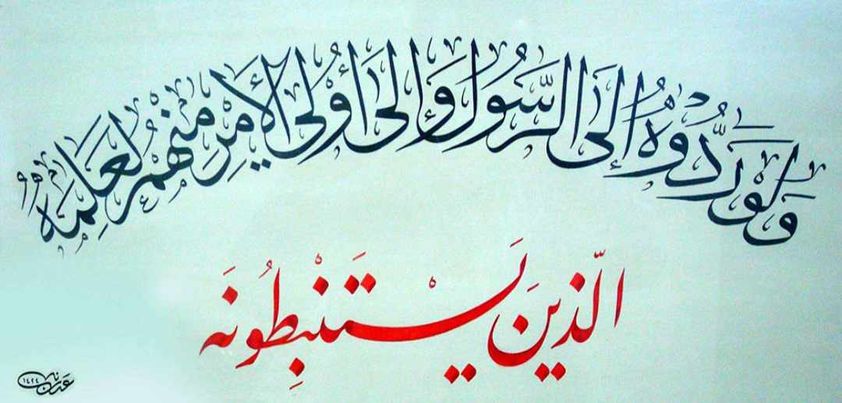 وَلَوْ رَدُّوهُ إِلَى الرَّسُولِ وَإِلَى أُولِي الْأَمْرِ مِنْهُمْ لَعَلِمَهُ
الَّذِينَ يَسْتَنْبِطُونَهُ
عدنان ١٤٢٤